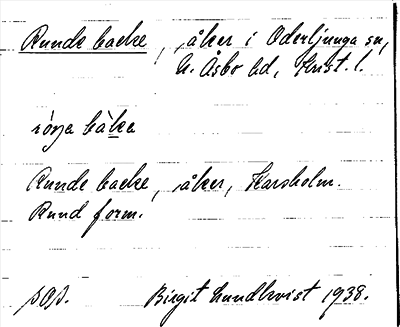 Runde backe, åker i Oderljunga sn,
N. Åsbo hd, Krist. l.
bàka
Runde backe, åker, Karsholm.
Rund form.
Birgit Lundkvist 1938.